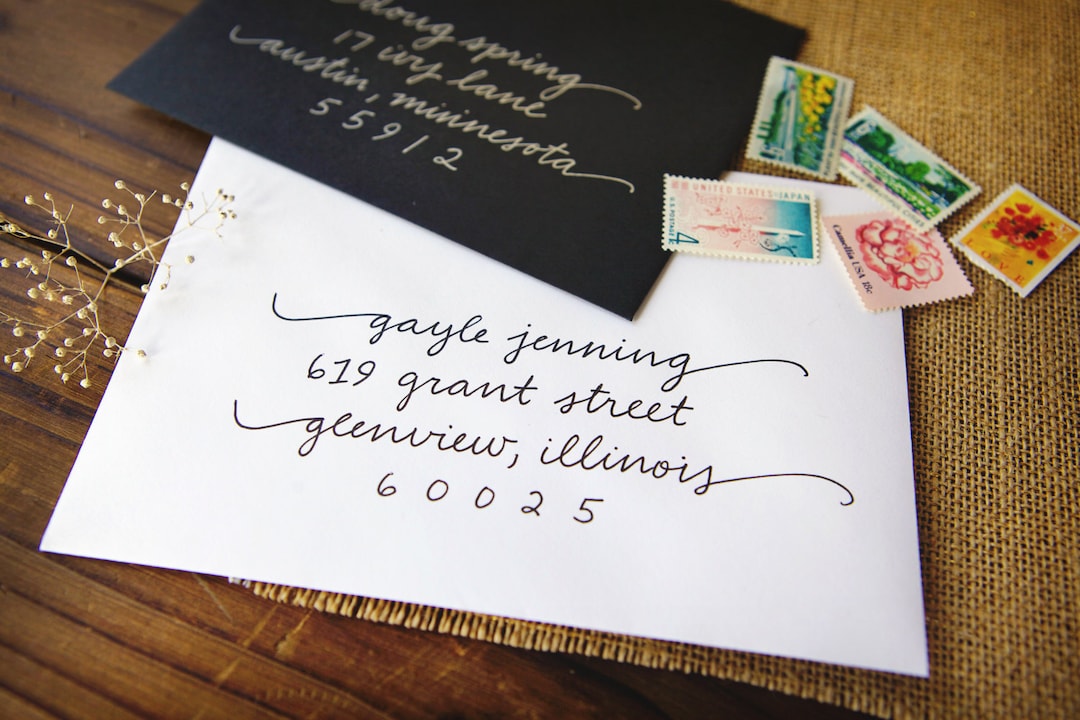 doug spring
17 ivy lane
austin, minnesota
55912
UNITED STATES JAPAN
U.S. POSTAGE
4
Camellia USA 18c
LOVE
gayle jenning
619 grant street
glenview, illinois
60025